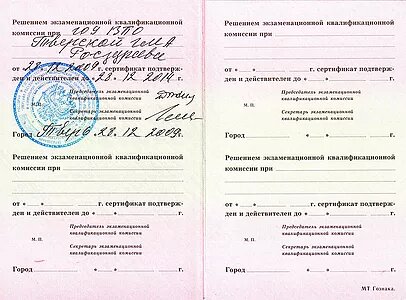 Решением экзаменационной квалификационной
комиссии при ГОУ ВПО
Тверской ГМА
Росздрава
от «28» 12 2009 г. сертификат подтверж-
ден и действителен до «28» 12. 2014 г.
Председатель экзаменационной
квалификационной комиссии
М.П.
Секретарь экзаменационной
квалификационной комиссии
Город Тверь «28» 12 2009г.
Решением экзаменационной квалификационной
комиссии при
от « » г. сертификат подтверж-
ден и действителен до « » г.
Председатель экзаменационной
квалификационной комиссии
М. П.
Секретарь экзаменационной
квалификационной комиссии
Город « » г.
Решением экзаменационной квалификационной
комиссии при
от « » г. сертификат подтверж-
ден и действителен до « » г.
Председатель экзаменационной
квалификационной комиссии
М. П.
Секретарь экзаменационной
квалификационной комиссии
Город « » г.
Решением экзаменационной квалификационной
комиссии при
от « » г. сертификат подтверж-
ден и действителен до « » г.
Председатель экзаменационной
квалификационной комиссии
М. П.
Секретарь экзаменационной
квалификационной комиссии
Город « » г.
МТ Гознака.